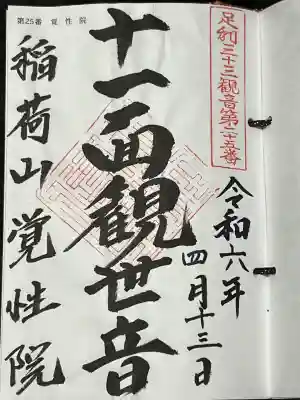 第25番 覚性院
足利三十三観音第二十五番
令和六年
四月十三日
十一面観世音
稲荷山覚性院